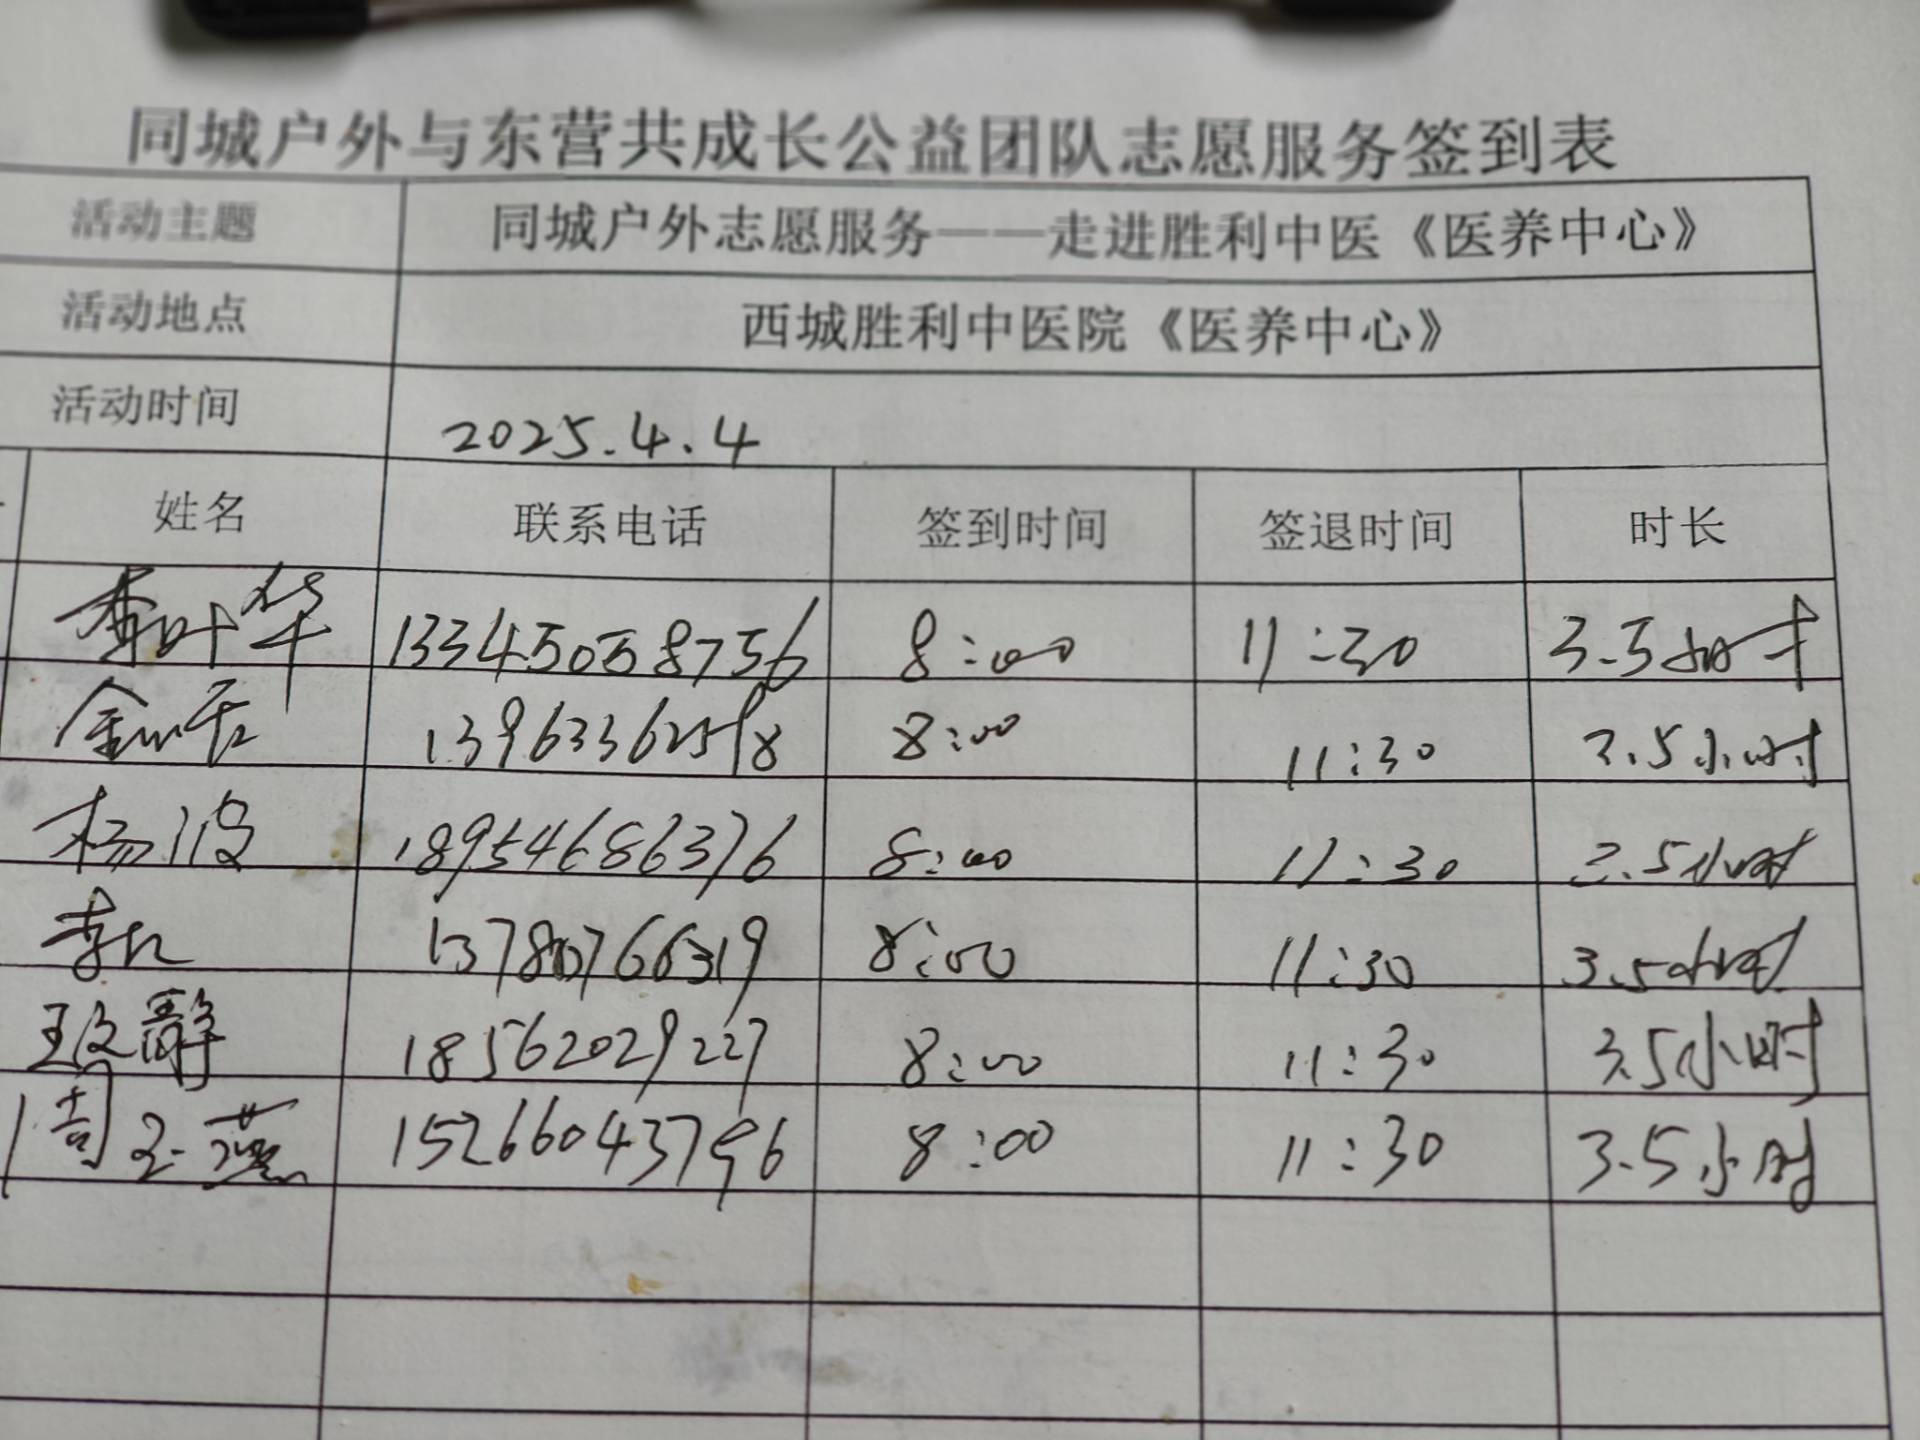 同城户外与东营共成长公益团队志愿服务签到表
活动主题 同城户外志愿服务——走进胜利中医《医养中心》
活动地点 西城胜利中医院《医养中心》
活动时间 2025.4.4
姓名 联系电话 签到时间 签退时间 时长
李叶华 13345058756 8:00 11:30 3.5小时
13963362598 8:00 11:30 3.5小时
杨波 18954686376 8:00 11:30 3.5小时
8:00 11:30 3.5小时
王文静 18562029227 8:00 11:30 3.5小时
周玉燕 15266043796 8:00 11:30 3.5小时